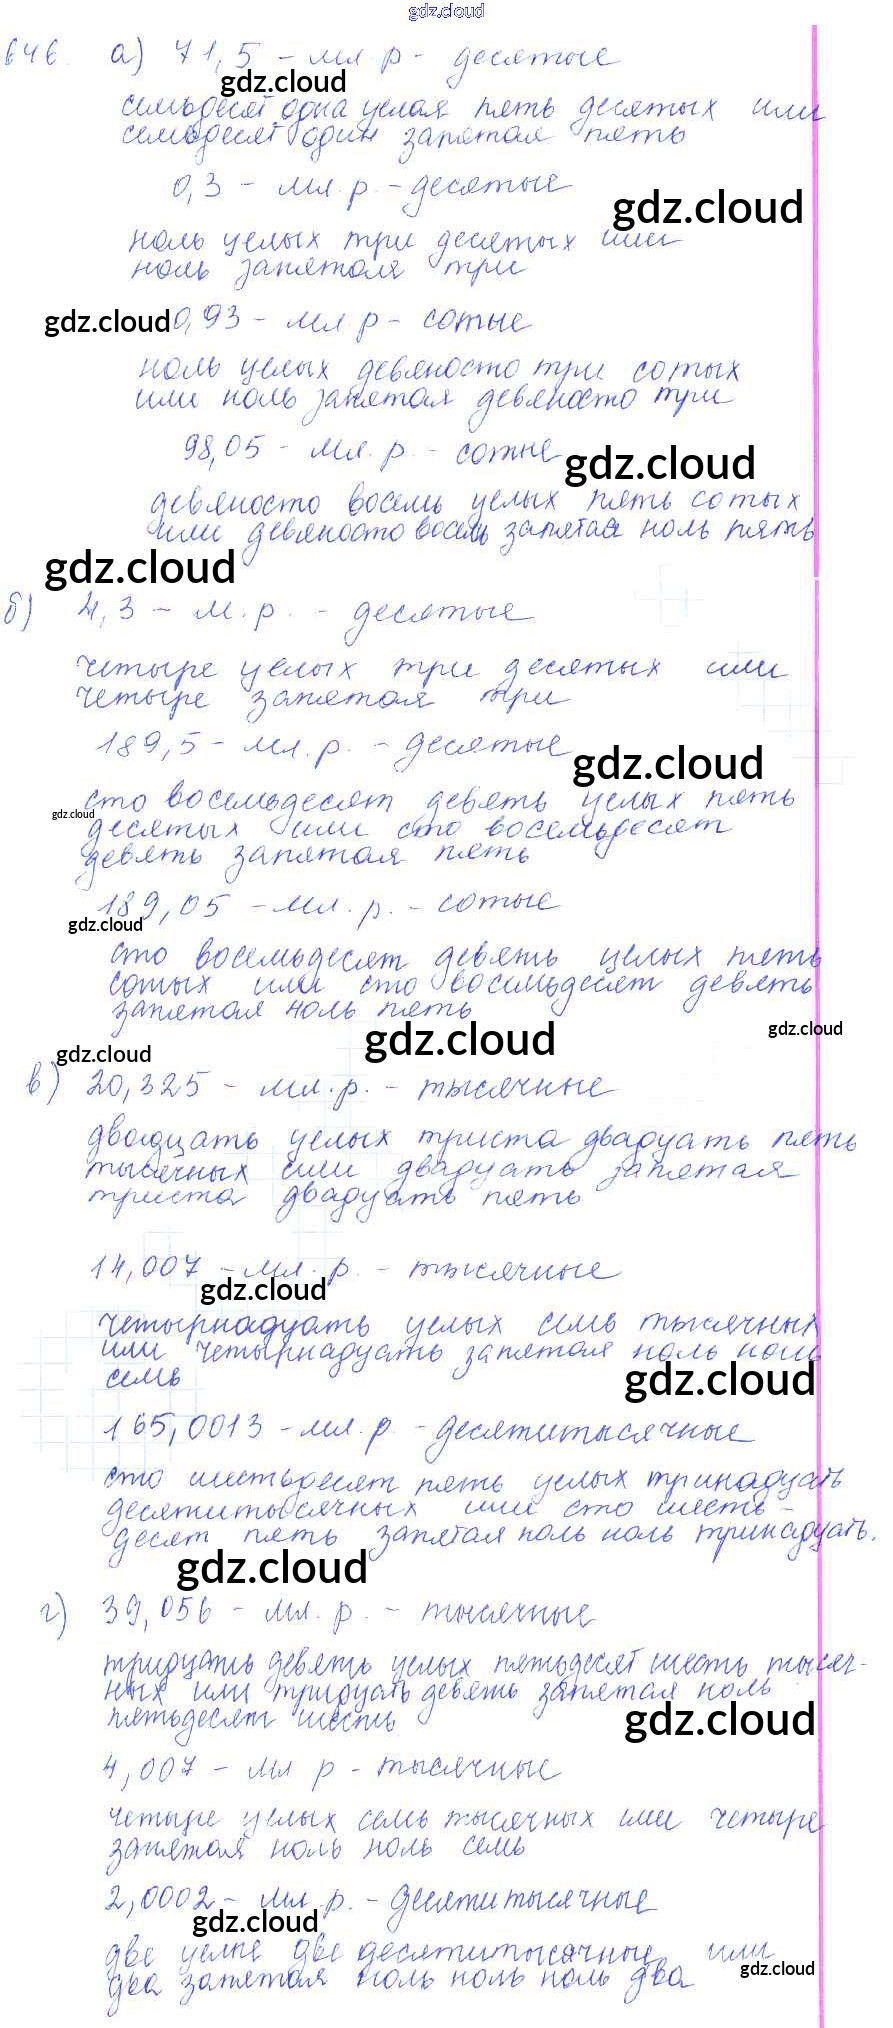 gdz.cloud
646. а) 71,5 - мл. р - десятые
gdz.cloud
семьдесят одна целая пять десятых или
семьдесят один запятая пять
0,3 - мл. р. - десятые
gdz.cloud
ноль целых три десятых или
ноль запятая три
gdz.cloud 0,93 - мл. р - сотые
ноль целых девяносто три сотых
или ноль запятая девяносто три
98,05 - мл. р. - сотые
gdz.cloud
девяносто восемь целых пять сотых
или девяносто восемь запятая ноль пять
gdz.cloud
б) 4,3 - м. р. - десятые
четыре целых три десятых или
четыре запятая три
189,5 - мл. р. - десятые
gdz.cloud
сто восемьдесят девять целых пять
gdz.cloud
десятых или сто восемьдесят
девять запятая пять
189,05 - мл. р. - сотые
gdz.cloud
сто восемьдесят девять целых пять
сотых или сто восемьдесят девять
запятая ноль пять
gdz.cloud
gdz.cloud
gdz.cloud
в) 20,325 - мл. р. - тысячные
двадцать целых триста двадцать пять
тысячных или двадцать запятая
триста двадцать пять
14,007 - мл. р. - тысячные
gdz.cloud
четырнадцать целых семь тысячных
или четырнадцать запятая ноль ноль
семь
gdz.cloud
165,0013 - мл. р. - десятитысячные
сто шестьдесят пять целых тринадцать
десятитысячных или сто шесть-
десят пять запятая ноль ноль тринадцать.
gdz.cloud
г) 39,056 - мл. р. - тысячные
тридцать девять целых пятьдесят шесть тысяч-
ных или тридцать девять запятая ноль
пятьдесят шесть
gdz.cloud
4,007 - мл р - тысячные
четыре целых семь тысячных или четыре
запятая ноль ноль семь
2,0002 - мл. р. - десятитысячные
gdz.cloud
две целые две десятитысячные или
два запятая ноль ноль ноль два
gdz.cloud